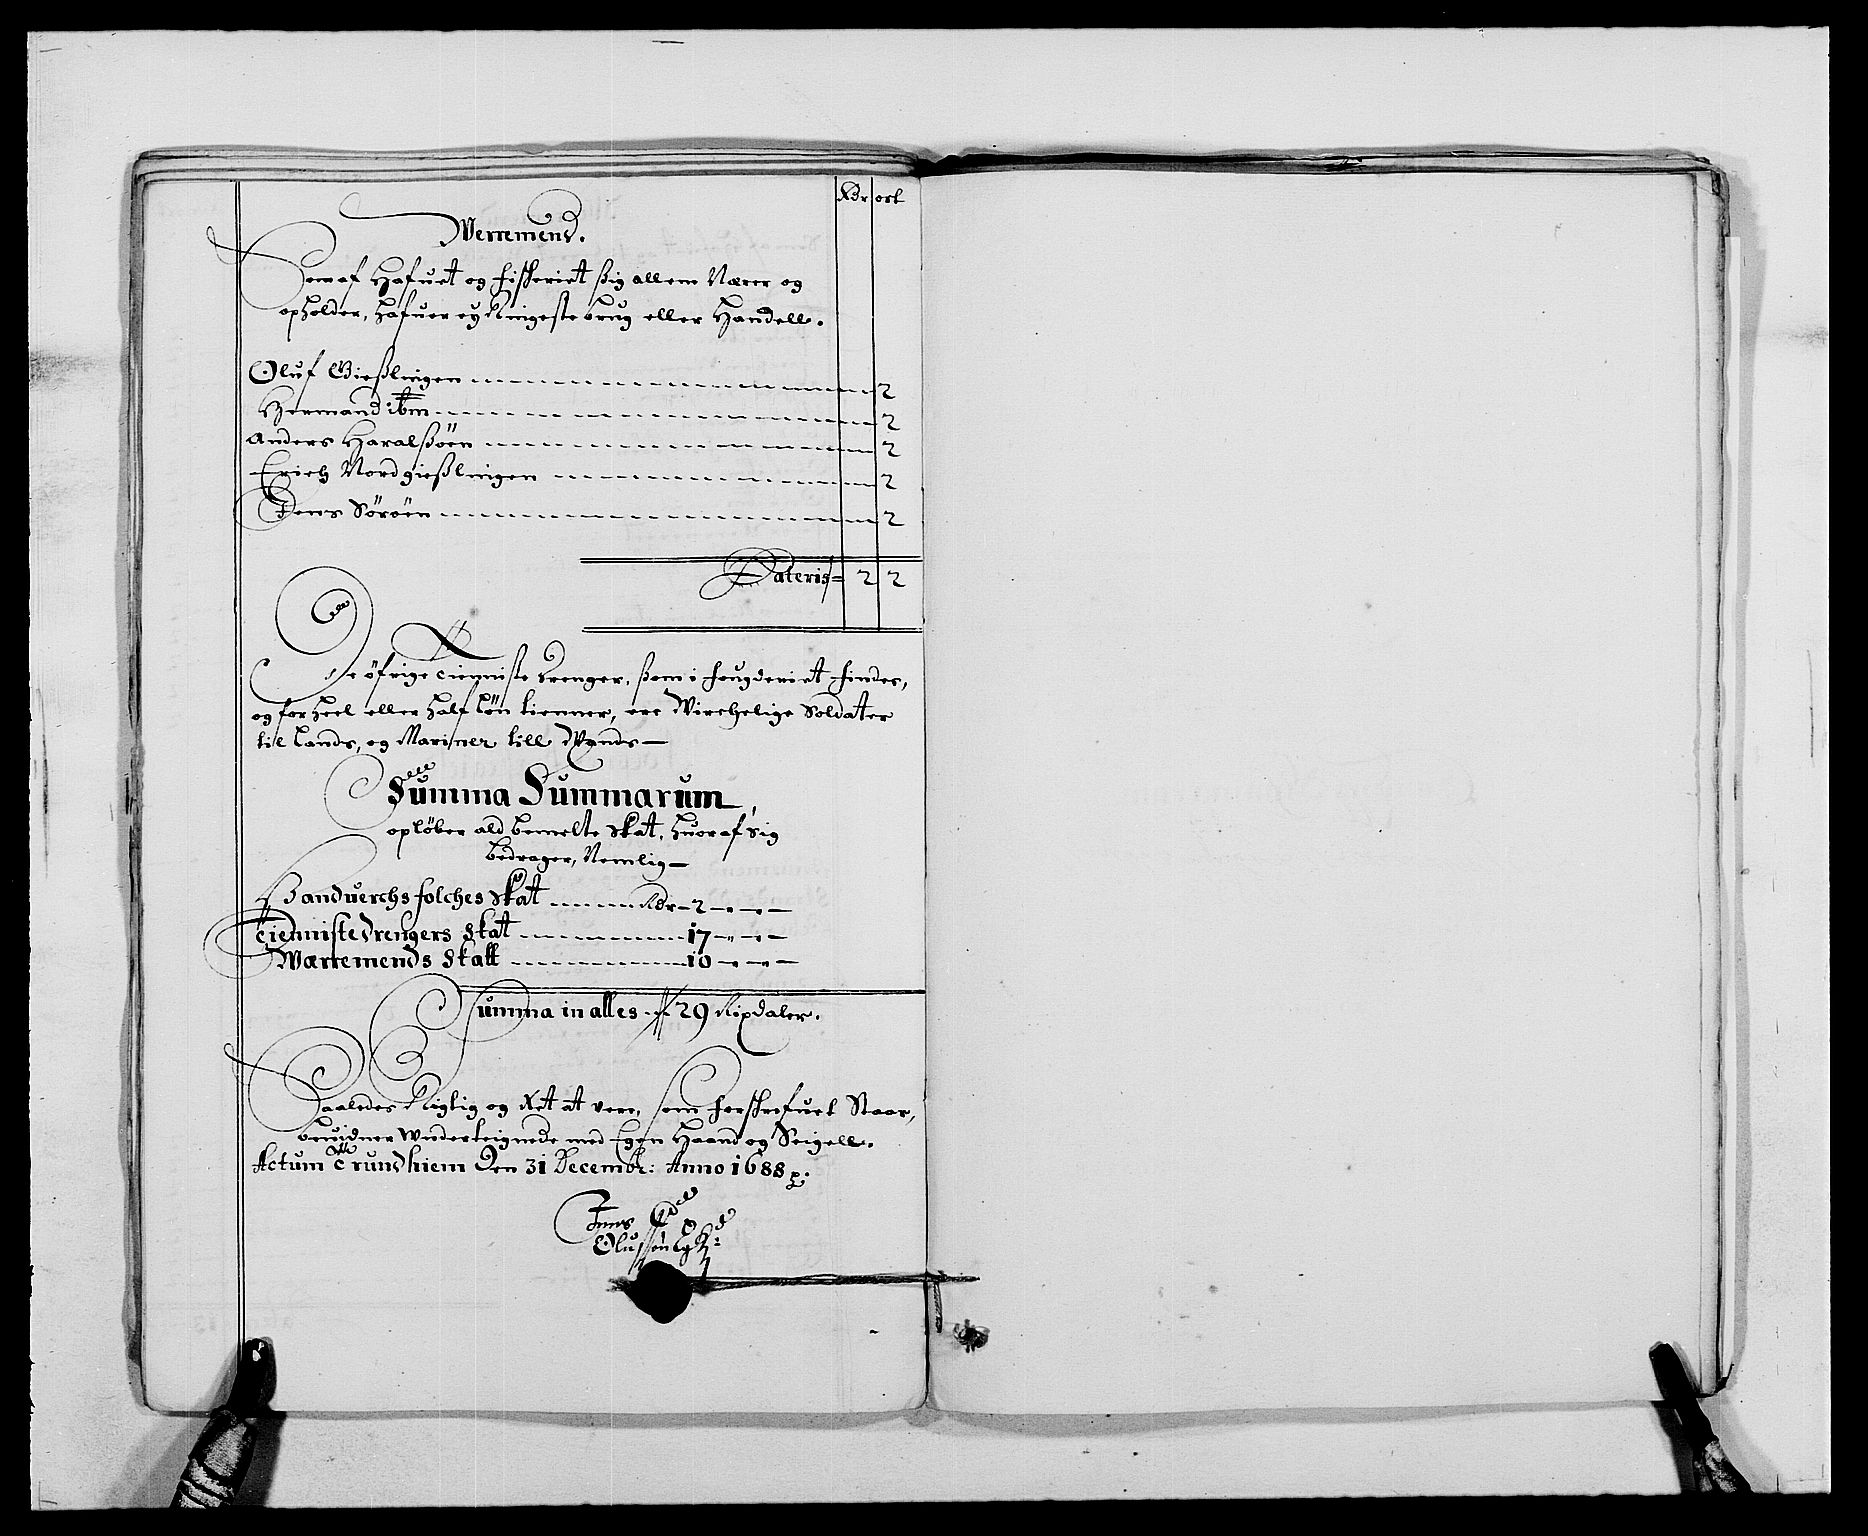 Rdr ort
Werremend.
Som af Hafuet og fischeriet sig alleene Nærer og
opholder, hafuer ey Ringeste brug eller Handell.
Oluf Gießlingen 2
Hermand ibm 2
Anders Haralßöen 2
Erich Nordgießlingen 2
Jens Söröen 2
Lateris 2 2
De öfrige tienniste drenger, som i fougderiet findes,
og for heel eller half løn tienner, ere Wirchelige Soldater
til Lands, og Mariner till Wands
Summa Summarum,
opløber ald bemelte skat, huor af sig
bedrager, Nemlig
Handuerchsfolches Skat Rdr 2
Tiennistedrengers Skat 17
Wærremends Skatt 10
Summa in alles 29 Rixdaler.
Saaledes Rigtig og Ret at vere, som forschrefuet Staar,
beuidner Underteignede med Egen Haand og Seigell.
Actum Trundhiem Den 31 Decembr: Anno 1688
Jens
Olufsøn